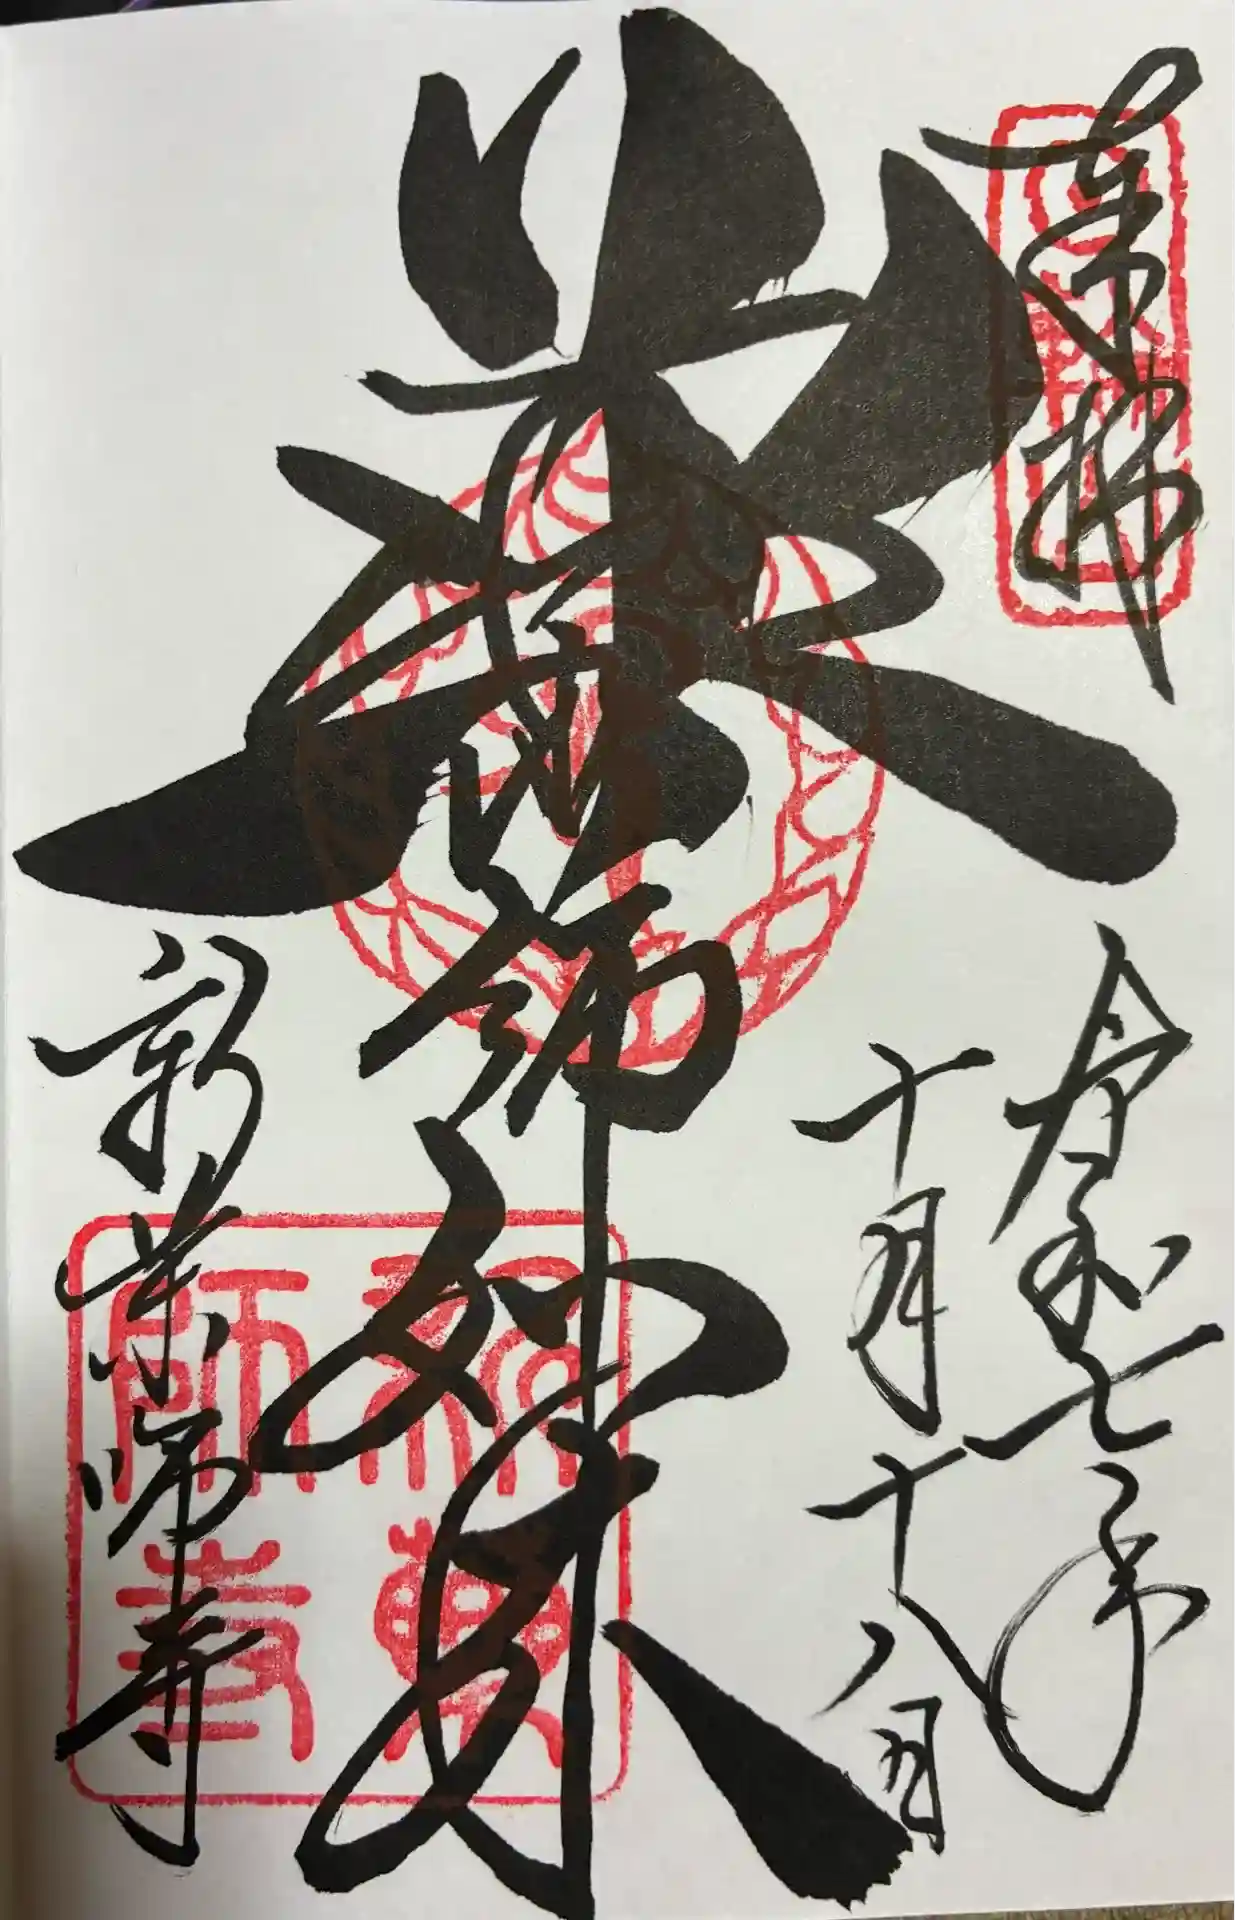 奉拝
令和七年
十月十八日
薬師如来
新薬師寺
新薬師寺